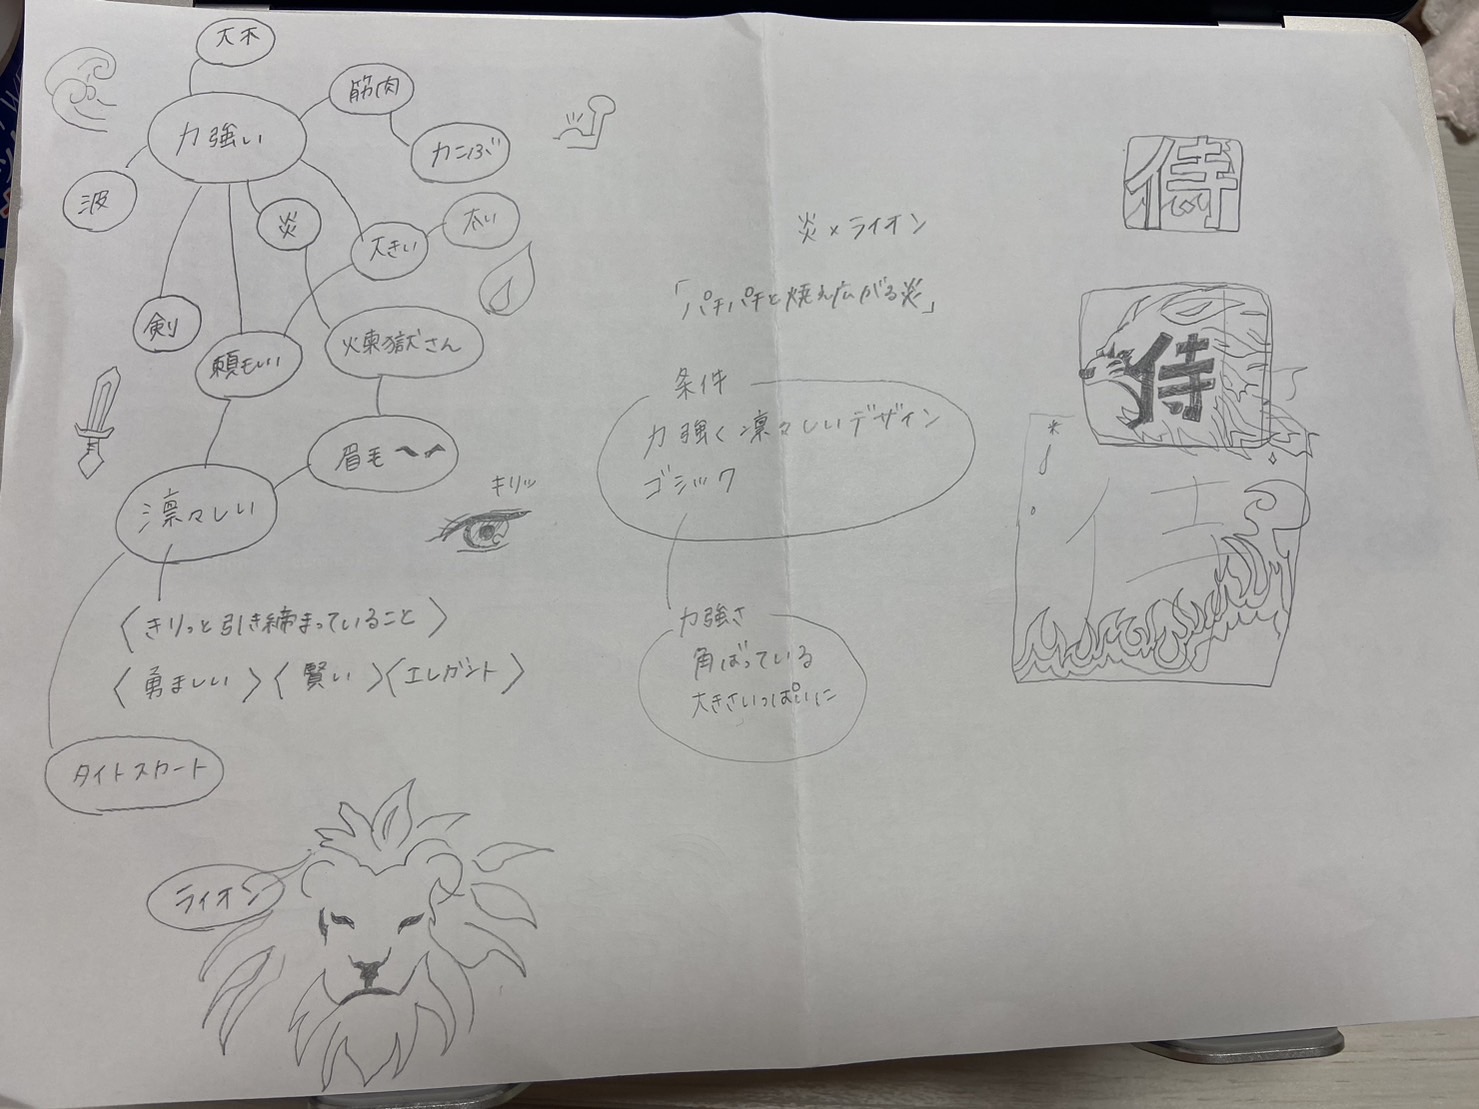 大木
力強い
筋肉
力こぶ
波
炎
大きい
太い
剣
頼もしい
煉獄さん
眉毛
凛々しい
キリッ
〈きりっと引き締まっていること〉
〈勇ましい〉〈賢い〉〈エレガント〉
タイトスカート
ライオン
炎×ライオン
「パチパチと燃え広がる炎」
条件
力強く凛々しいデザイン
ゴシック
力強さ
角ばっている
大きさいっぱいに
侍
侍
侍